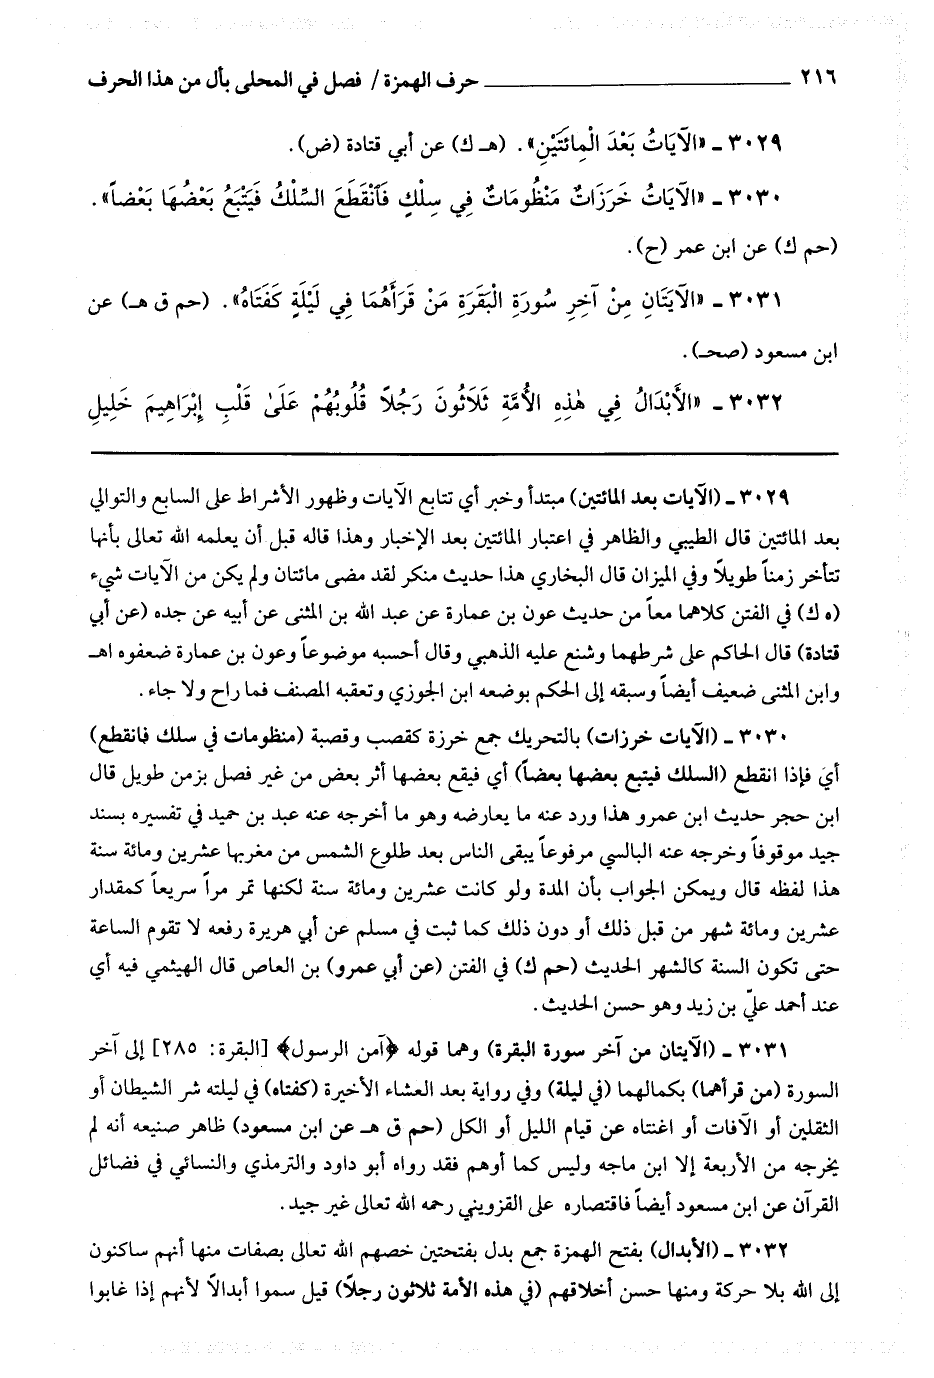 ٢١٦ ـــــــــــــــــ حرف الهمزة / فصل في المحلى بأل من هذا الحرف
٣٠٢٩ ـ «الآيَاتُ بَعْدَ الْمِائَتَيْنِ». (هـ ك) عن أبي قتادة (ض).
٣٠٣٠ ـ «الآيَاتُ خَرَزَاتٌ مَنْظُومَاتٌ فِي سِلْكٍ فَٱنْقَطَعَ السِّلْكُ فَيَتْبَعُ بَعْضُهَا بَعْضاً».
(حم ك) عن ابن عمر (ح).
٣٠٣١ ـ «الآيَتَانِ مِنْ آخِرِ سُورَةِ الْبَقَرَةِ مَنْ قَرَأَهُمَا فِي لَيْلَةٍ كَفَتَاهُ». (حم ق هـ) عن
ابن مسعود (صحـ).
٣٠٣٢ ـ «الأَبْدَالُ فِي هٰذِهِ الأُمَّةِ ثَلَاثُونَ رَجُلاً قُلُوبُهُمْ عَلَىٰ قَلْبِ إِبْرَاهِيمَ خَلِيلِ
٣٠٢٩ ـ (الآيات بعد المائتين) مبتدأ وخبر أي تتابع الآيات وظهور الأشراط على السابع والتوالي
بعد المائتين قال الطيبي والظاهر في اعتبار المائتين بعد الإخبار وهذا قاله قبل أن يعلمه الله تعالى بأنها
تتأخر زمناً طويلاً وفي الميزان قال البخاري هذا حديث منكر لقد مضى مائتان ولم يكن من الآيات شيء
(ه ك) في الفتن كلاهما معاً من حديث عون بن عمارة عن عبد الله بن المثنى عن أبيه عن جده (عن أبي
قتادة) قال الحاكم على شرطهما وشنع عليه الذهبي وقال أحسبه موضوعاً وعون بن عمارة ضعفوه اهـ
وابن المثنى ضعيف أيضاً وسبقه إلى الحكم بوضعه ابن الجوزي وتعقبه المصنف فما راح ولا جاء.
٣٠٣٠ ـ (الآيات خرزات) بالتحريك جمع خرزة كقصب وقصبة (منظومات في سلك فانقطع)
أي فإذا انقطع (السلك فيتبع بعضها بعضاً) أي فيقع بعضها أثر بعض من غير فصل بزمن طويل قال
ابن حجر حديث ابن عمرو هذا ورد عنه ما يعارضه وهو ما أخرجه عنه عبد بن حميد في تفسيره بسند
جيد موقوفاً وخرجه عنه البالسي مرفوعاً يبقى الناس بعد طلوع الشمس من مغربها عشرين ومائة سنة
هذا لفظه قال ويمكن الجواب بأن المدة ولو كانت عشرين ومائة سنة لكنها تمر مراً سريعاً كمقدار
عشرين ومائة شهر من قبل ذلك أو دون ذلك كما ثبت في مسلم عن أبي هريرة رفعه لا تقوم الساعة
حتى تكون السنة كالشهر الحديث (حم ك) في الفتن (عن أبي عمرو) بن العاص قال الهيثمي فيه أي
عند أحمد عليّ بن زيد وهو حسن الحديث.
٣٠٣١ ـ (الآيتان من آخر سورة البقرة) وهما قوله ﴿آمن الرسول﴾ [البقرة: ٢٨٥] إلى آخر
السورة (من قرأهما) بكمالهما (في ليلة) وفي رواية بعد العشاء الأخيرة (كفتاه) في ليلته شر الشيطان أو
الثقلين أو الآفات أو اغنتاه عن قيام الليل أو الكل (حم ق هـ عن ابن مسعود) ظاهر صنيعه أنه لم
يخرجه من الأربعة إلا ابن ماجه وليس كما أوهم فقد رواه أبو داود والترمذي والنسائي في فضائل
القرآن عن ابن مسعود أيضاً فاقتصاره على القزويني رحمه الله تعالى غير جيد.
٣٠٣٢ ـ (الأبدال) بفتح الهمزة جمع بدل بفتحتين خصهم الله تعالى بصفات منها أنهم ساكنون
إلى الله بلا حركة ومنها حسن أخلاقهم (في هذه الأمة ثلاثون رجلاً) قيل سموا أبدالاً لأنهم إذا غابوا